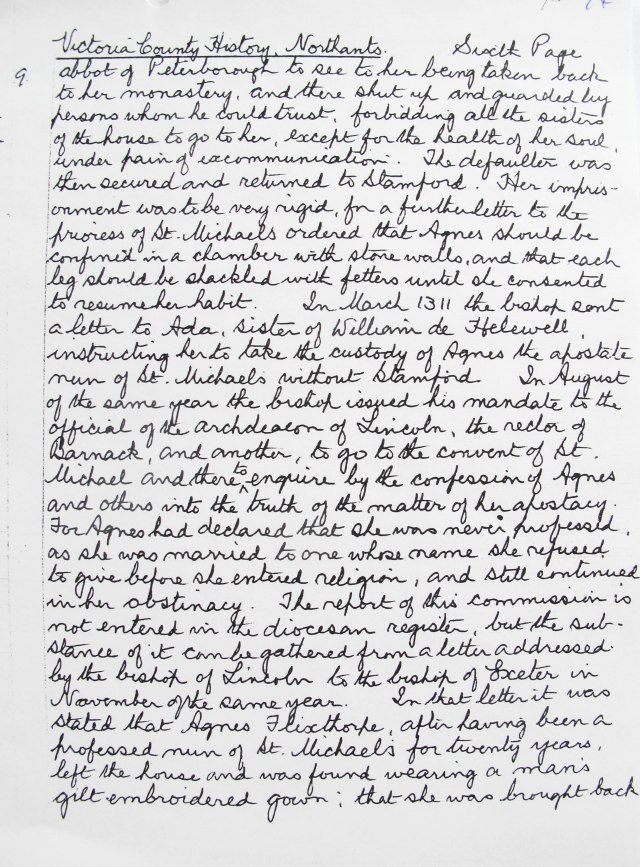 Victoria County History, Northants. Sixth Page
9. abbot of Peterborough to see to her being taken back
to her monastery, and there shut up and guarded by
persons whom he could trust, forbidding all the sisters
of the house to go to her, except for the health of her soul,
under pain of excommunication. The defaulter was
then secured and returned to Stamford. Her impris-
onment was to be very rigid, for a further letter to the
prioress of St. Michaels ordered that Agnes should be
confined in a chamber with stone walls, and that each
leg should be shackled with fetters until she consented
to resume her habit. In March 1311 the bishop sent
a letter to Ada, sister of William de Helewell,
instructing her to take the custody of Agnes the apostate
nun of St. Michaels without Stamford In August
of the same year the bishop issued his mandate to the
official of the archdeacon of Lincoln, the rector of
Barnack, and another, to go to the convent of St.
Michael and there to enquire by the confession of Agnes
and others into the truth of the matter of her apostacy.
For Agnes had declared that she was never professed,
as she was married to one whose name she refused
to give before she entered religion, and still continued
in her obstinacy. The report of this commission is
not entered in the diocesan register, but the sub-
stance of it can be gathered from a letter addressed
by the bishop of Lincoln to the bishop of Exeter in
November of the same year. In that letter it was
stated that Agnes Flixthorpe, after having been a
professed nun of St. Michael's for twenty years,
left the house and was found wearing a man's
gilt embroidered gown; that she was brought back